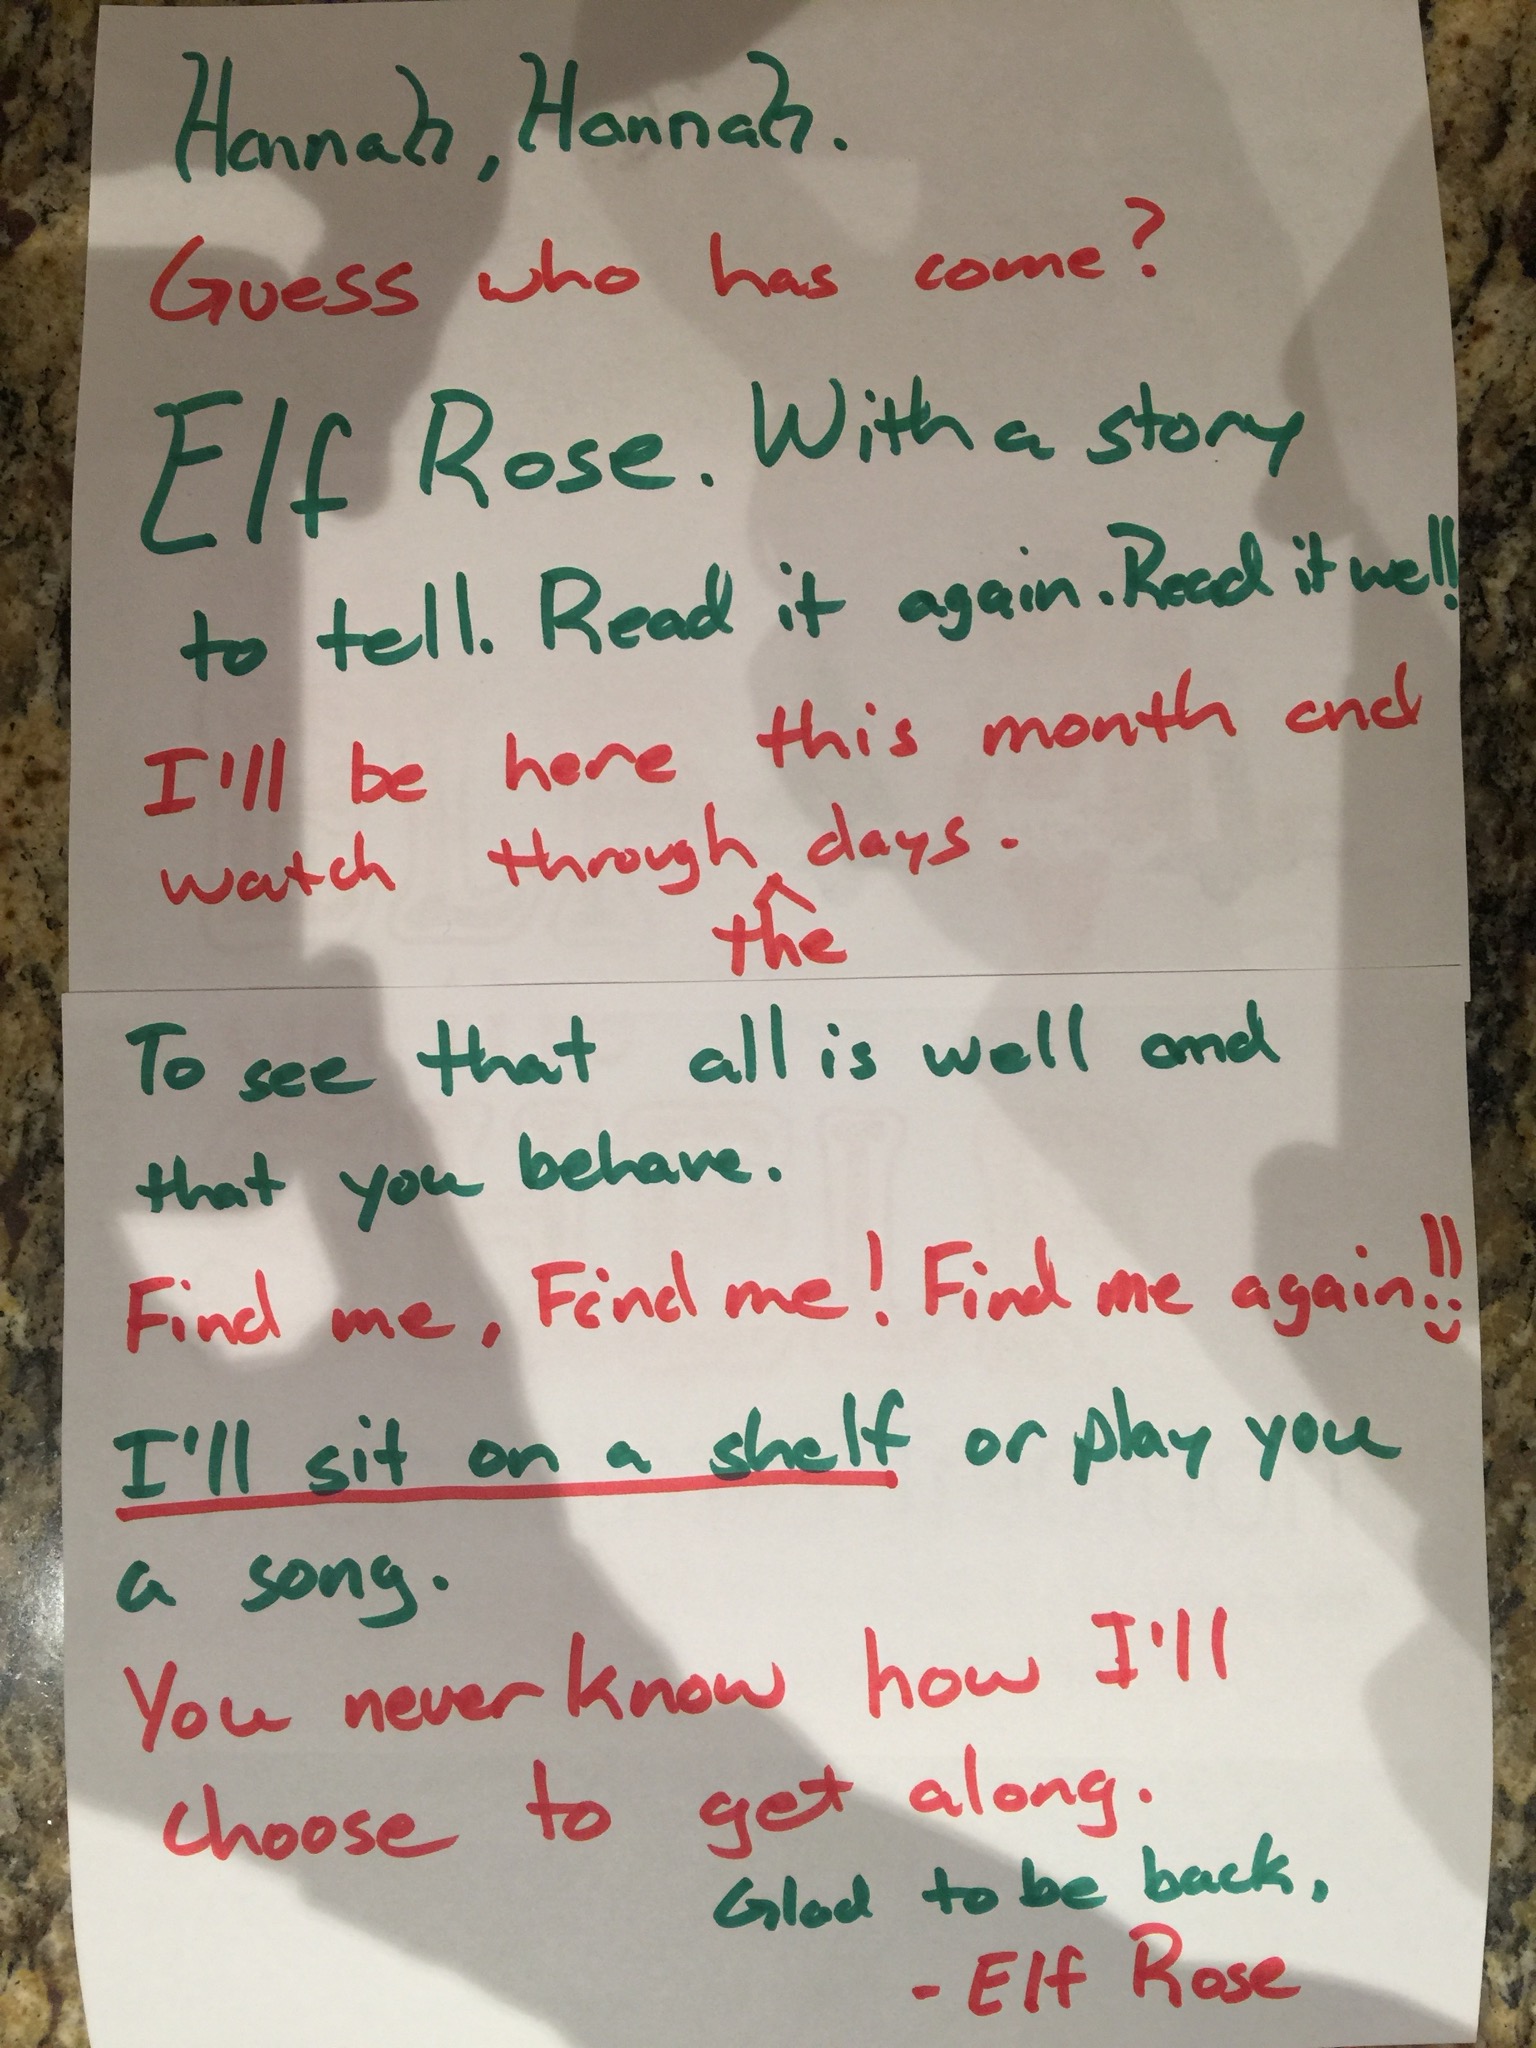 Hannah, Hannah.
Guess who has come?
Elf Rose. With a story
to tell. Read it again. Read it well!
I'll be here this month and
watch through the days.
To see that all is well and
that you behave.
Find me, Find me! Find me again!!
I'll sit on a shelf or play you
a song.
You never know how I'll
choose to get along.
Glad to be back,
- Elf Rose